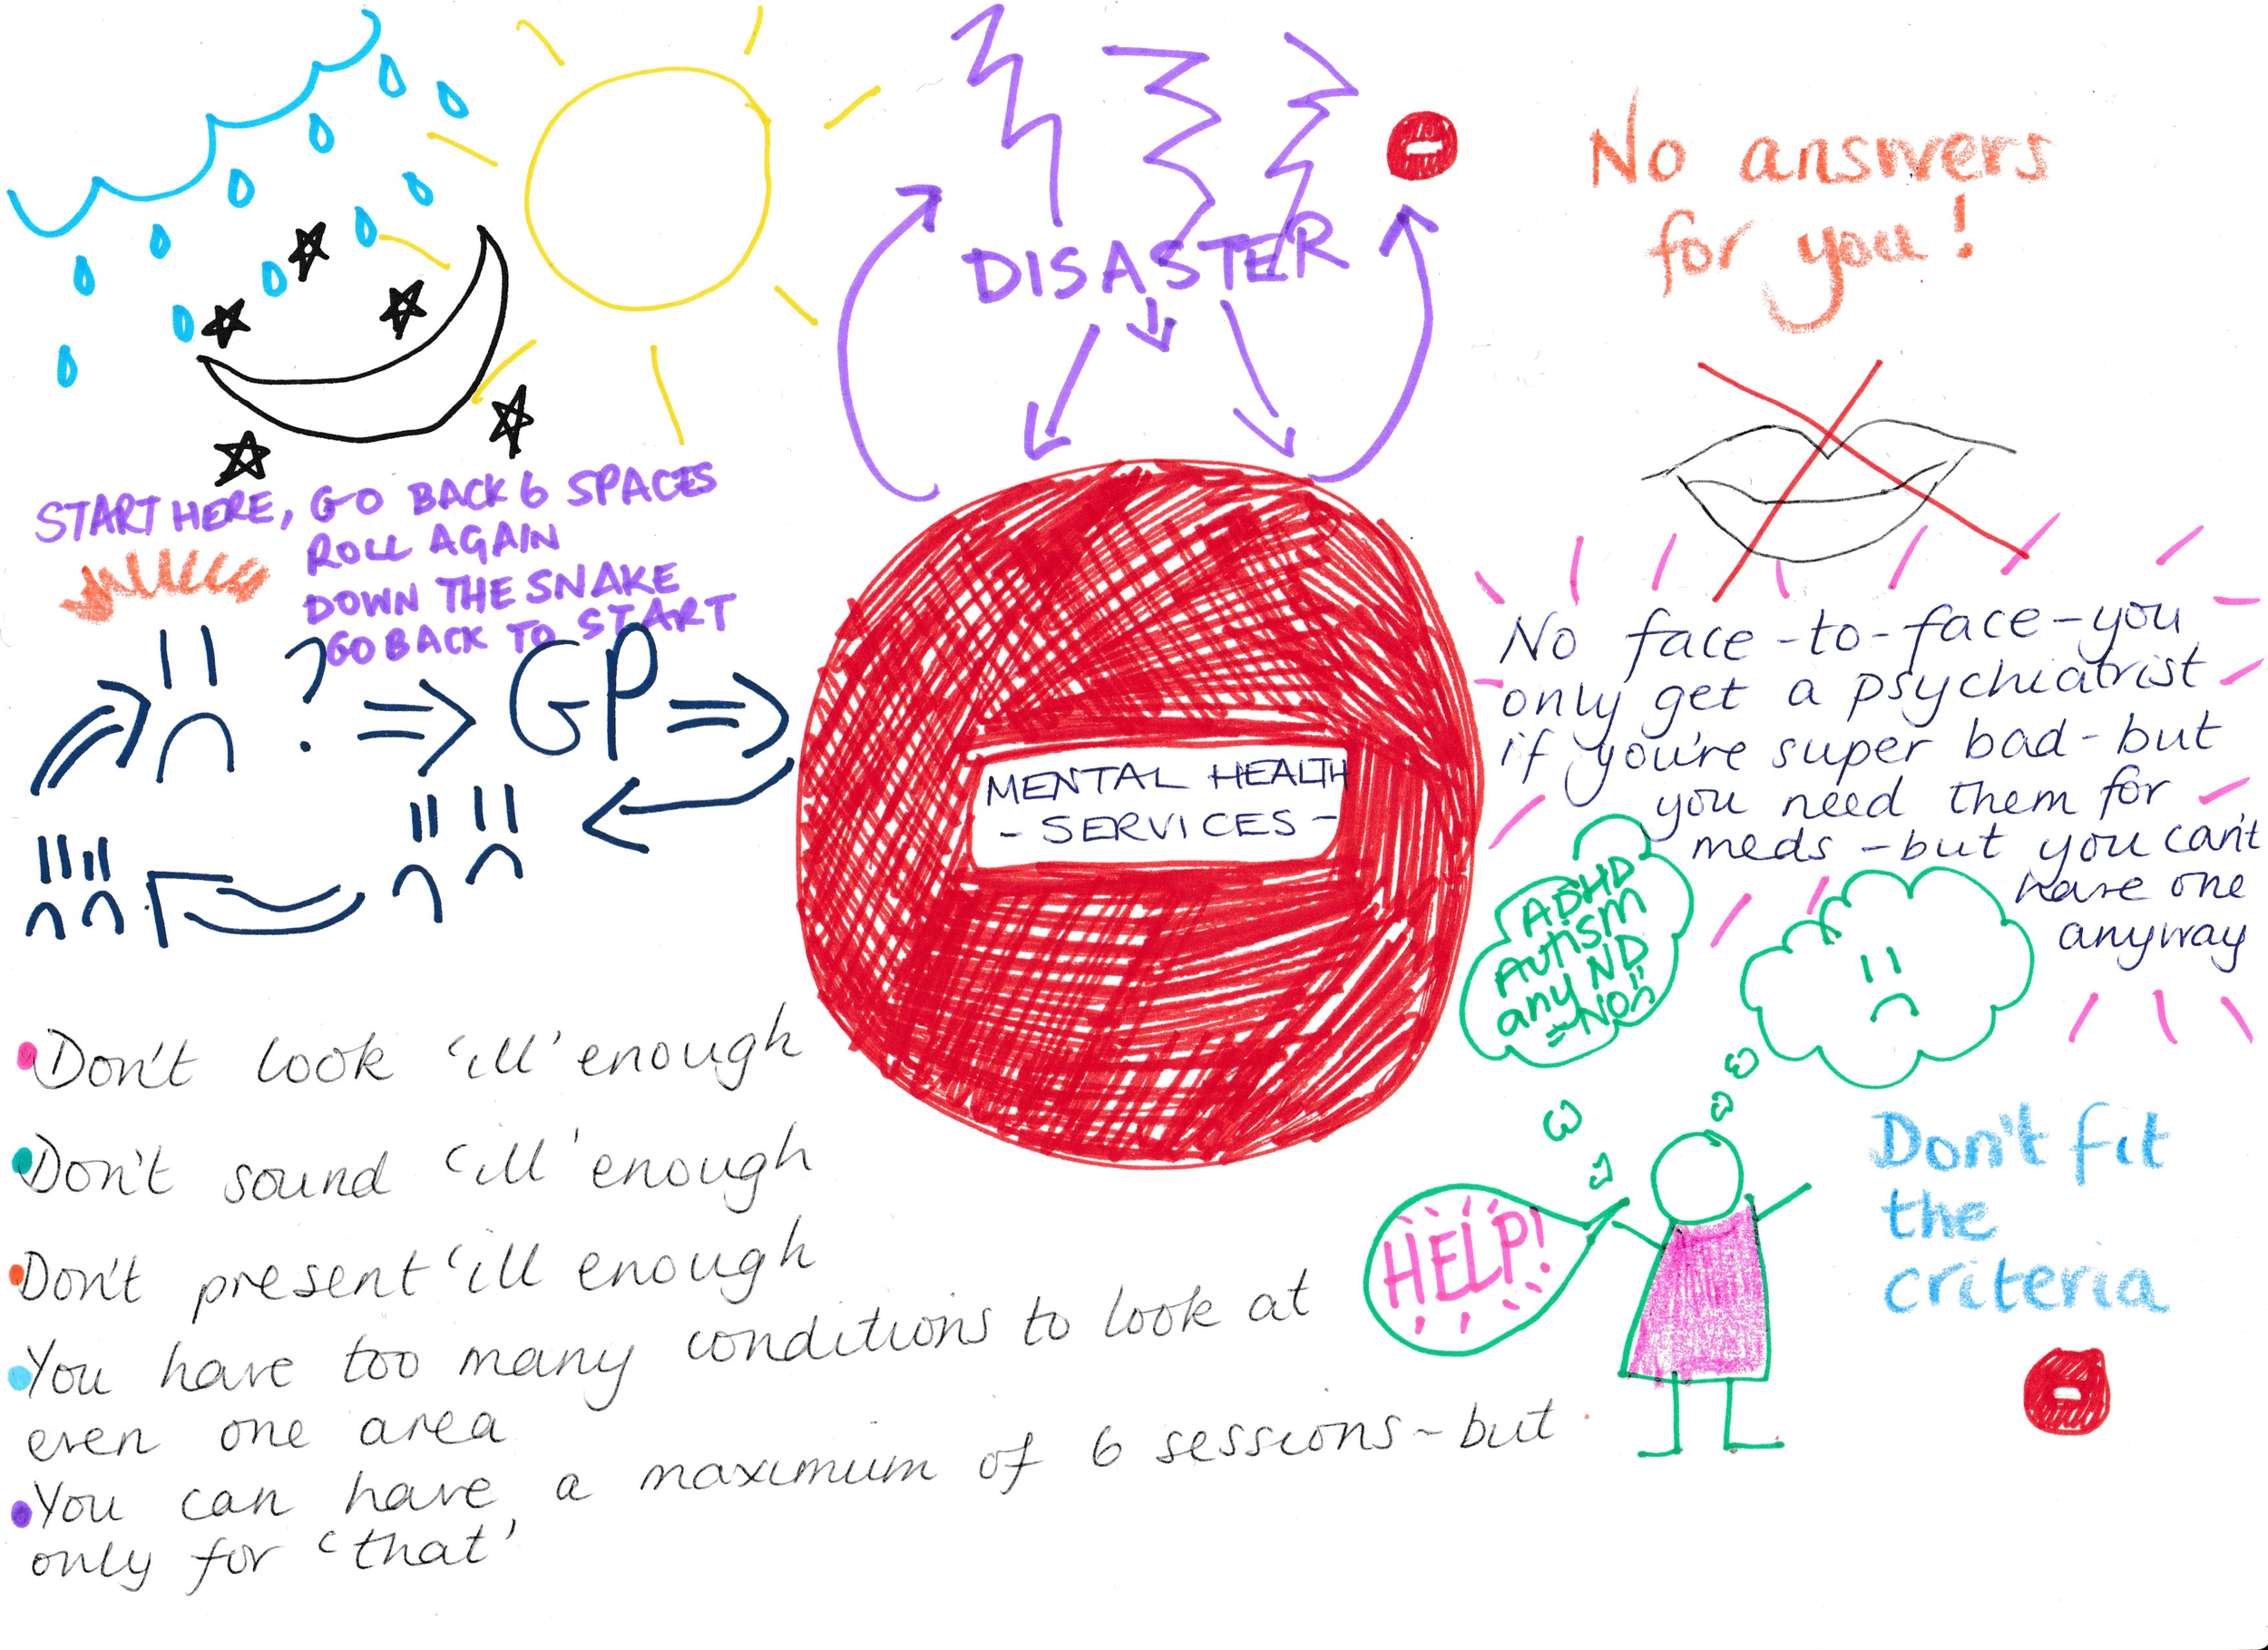 DISASTER
No answers
for you!
START HERE, GO BACK 6 SPACES
ROLL AGAIN
DOWN THE SNAKE
GO BACK TO START
? ⇒ GP ⇒
MENTAL HEALTH
- SERVICES -
No face-to-face-you
only get a psychiatrist
if you're super bad-but
you need them for
meds -but you can't
have one
anyway
ADHD
Autism
any ND
=NO!!
•Don't look 'ill' enough
•Don't sound 'ill' enough
•Don't present 'ill enough
•You have too many conditions to look at
even one area
•You can have a maximum of 6 sessions-but
only for 'that'
HELP!
Don't fit
the
criteria